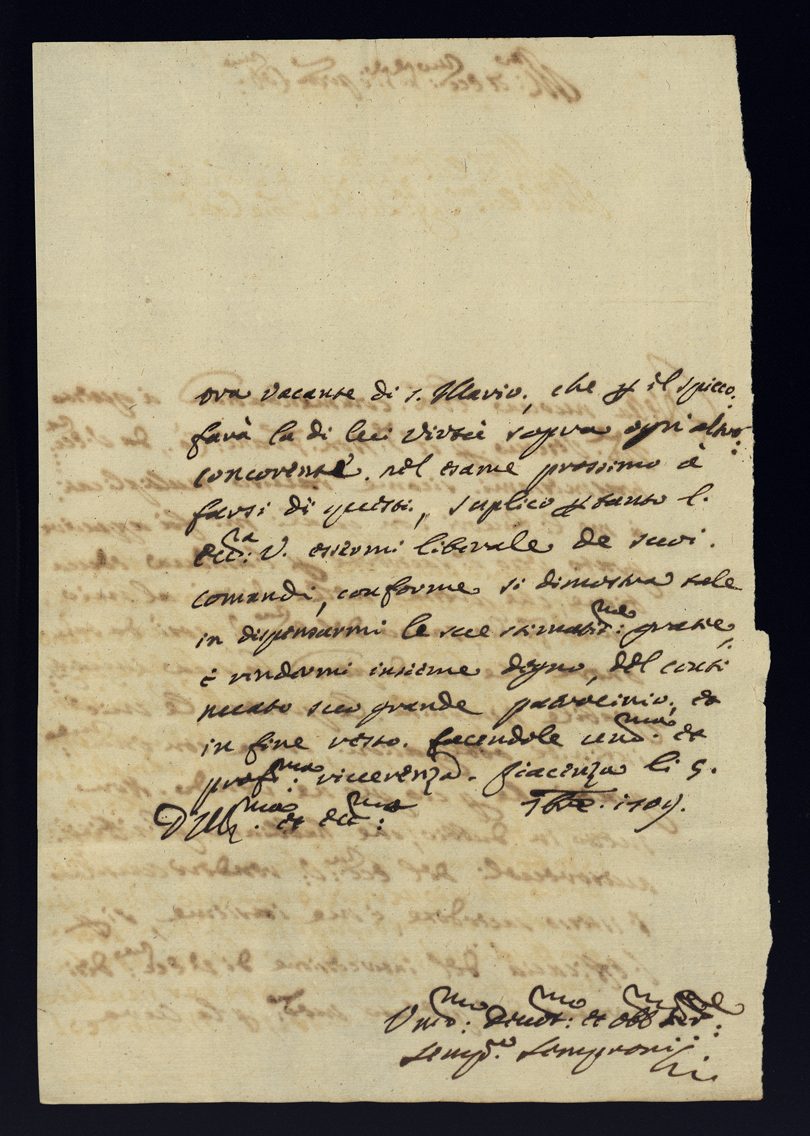 ora vacante di s. Illario, che p il spicco.
farà la di lei Virtù sopra ogni altro
concorente. nel esame prossimo à
farsi di questi, suplico p tanto l.
Ecc:za V. essermi liberale de suoi.
comandi, conforme si dimostra tale
in dispensarmi le sue stimatis:me gratie,
è rendermi insieme degno, del conti
nuato suo grande patrocinio, et
in fine resto. facendole um:ma et
prof:ma riverenza. Piacenza li 5.
7bre. 1709.
D V Ill:ma et Ecc:ma
Umo: devot:mo et obb:
Semp: Sempronij